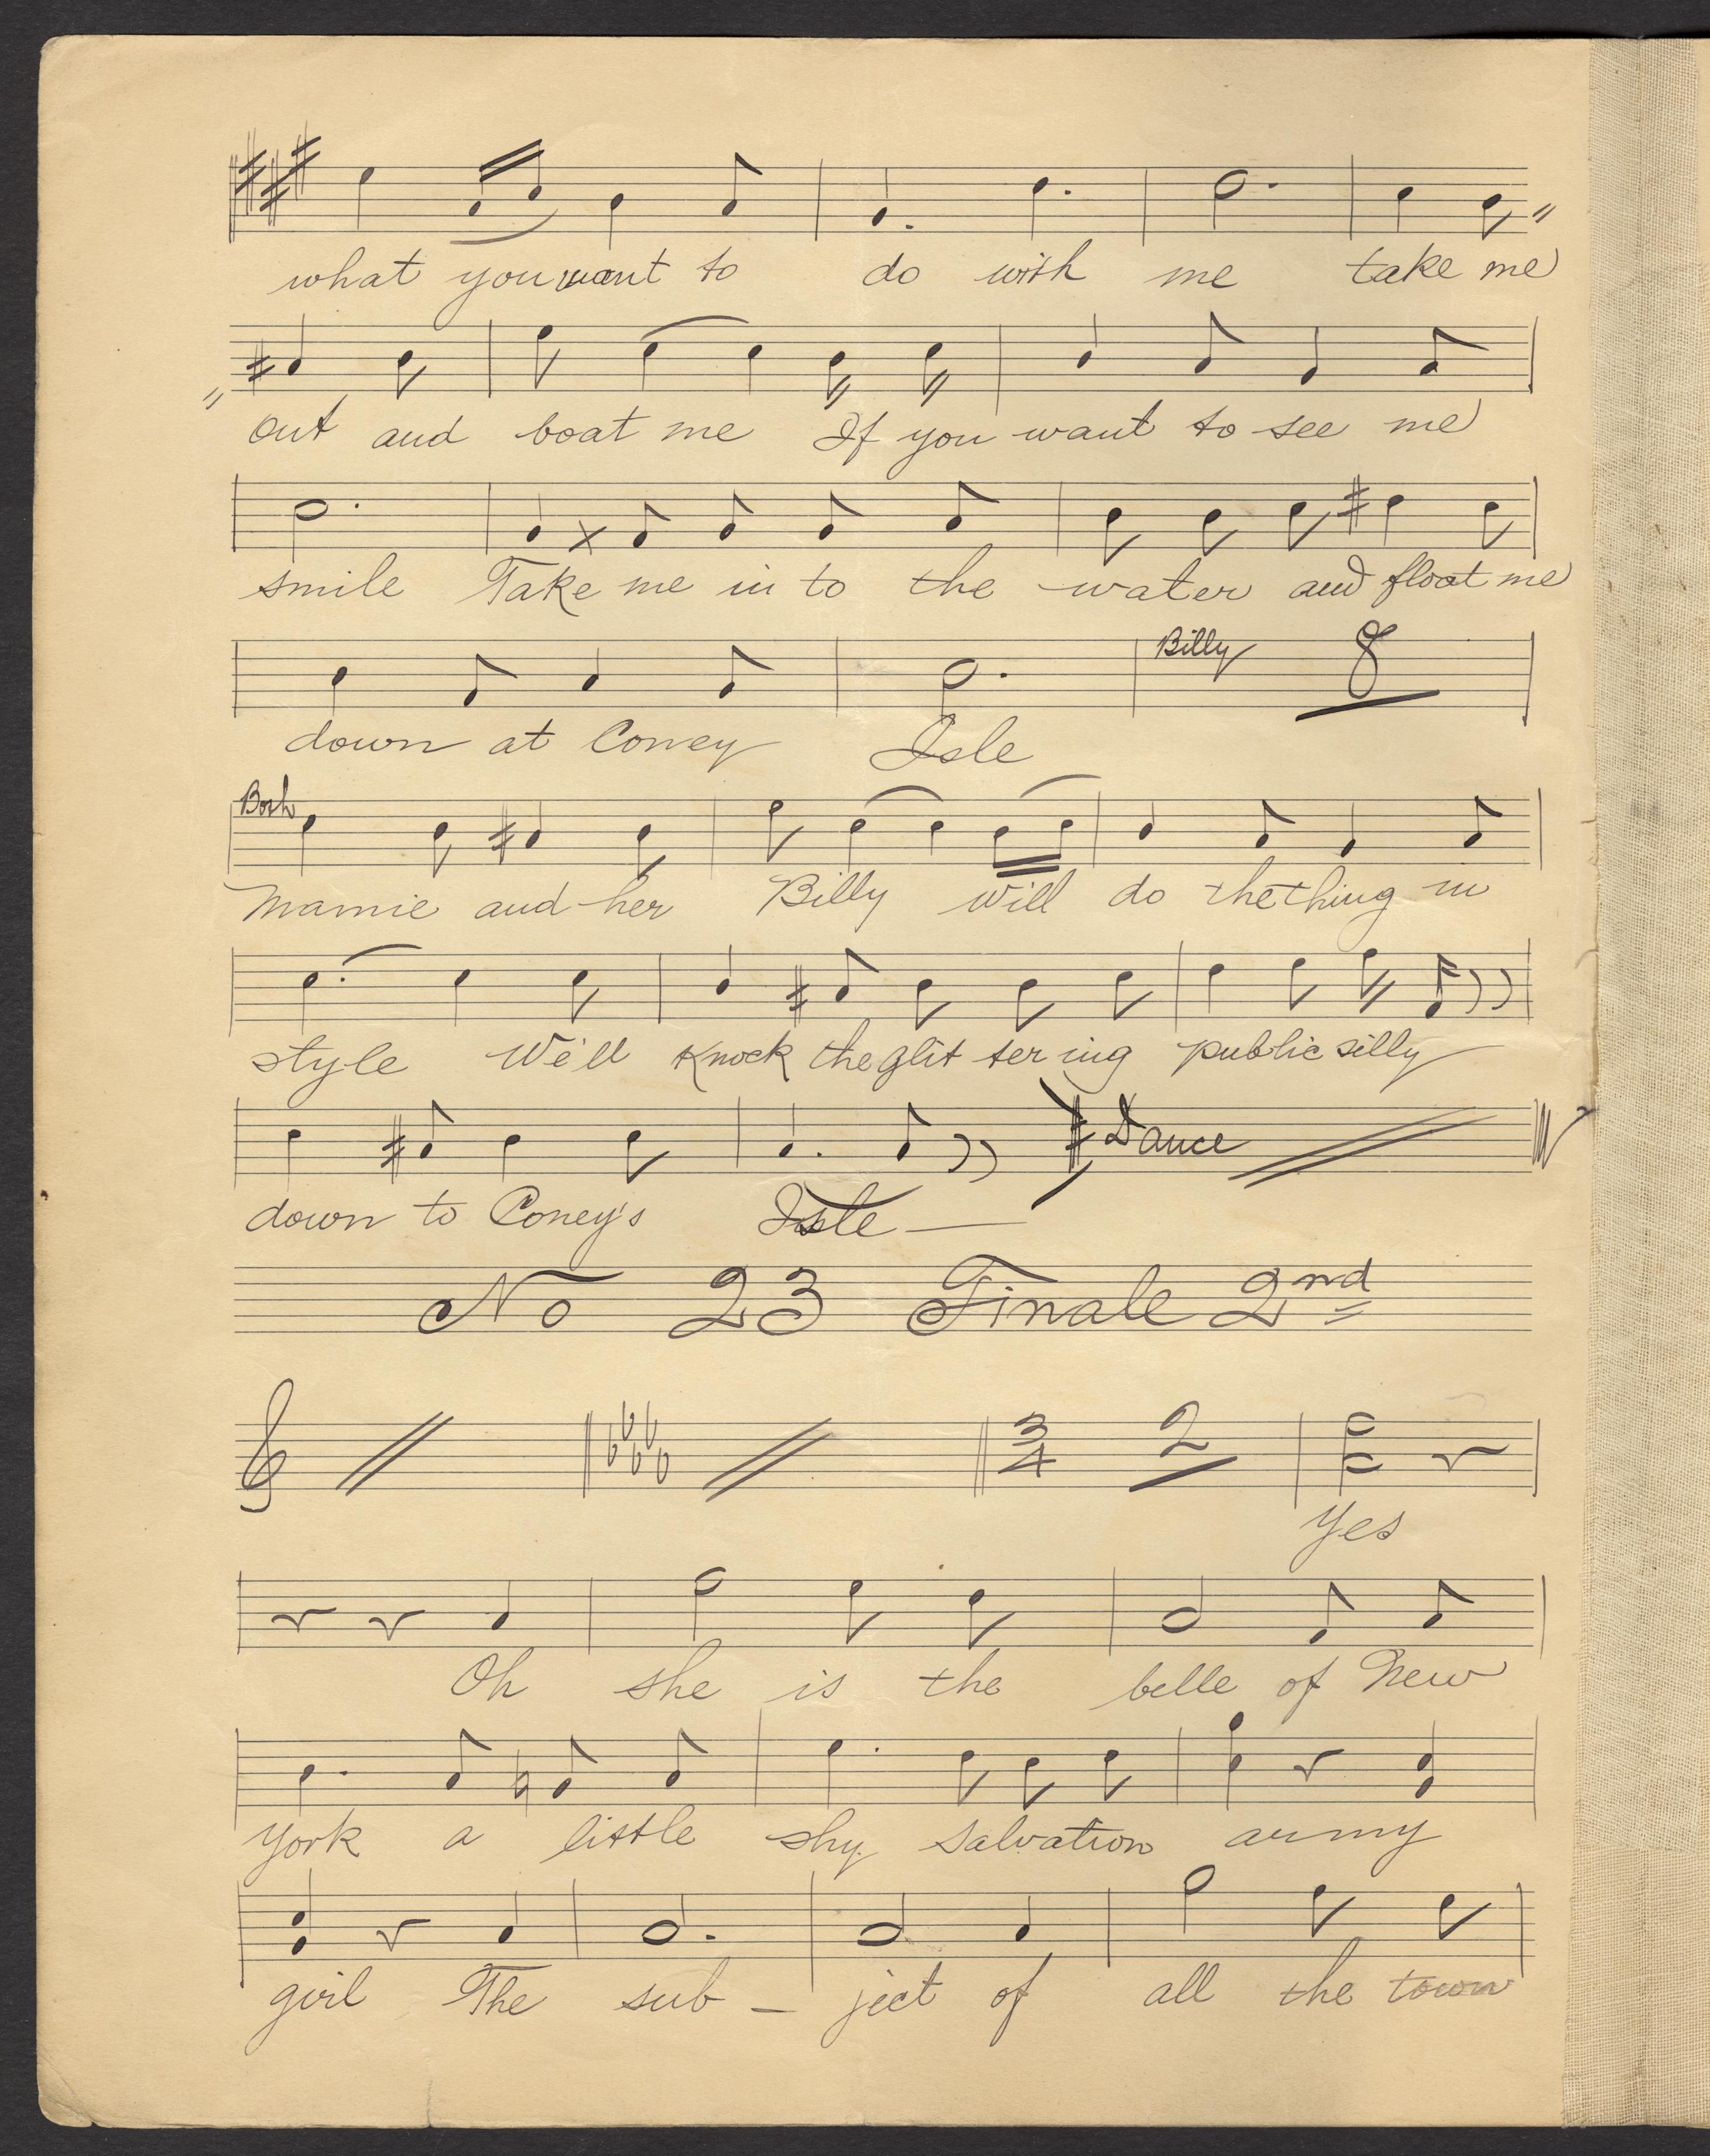 what you want to do with me take me
out and boat me If you want to see me
smile Take me in to the water and float me
Billy 8
down at Coney Isle
Both
Mamie and her Billy will do the thing in
style We'll knock the glit ter ing public silly
Dance
down to Coney's Isle —
No 23 Finale 2nd
3/4 2
Yes
Oh she is the belle of New
York a little shy Salvation army
girl The sub – ject of all the town